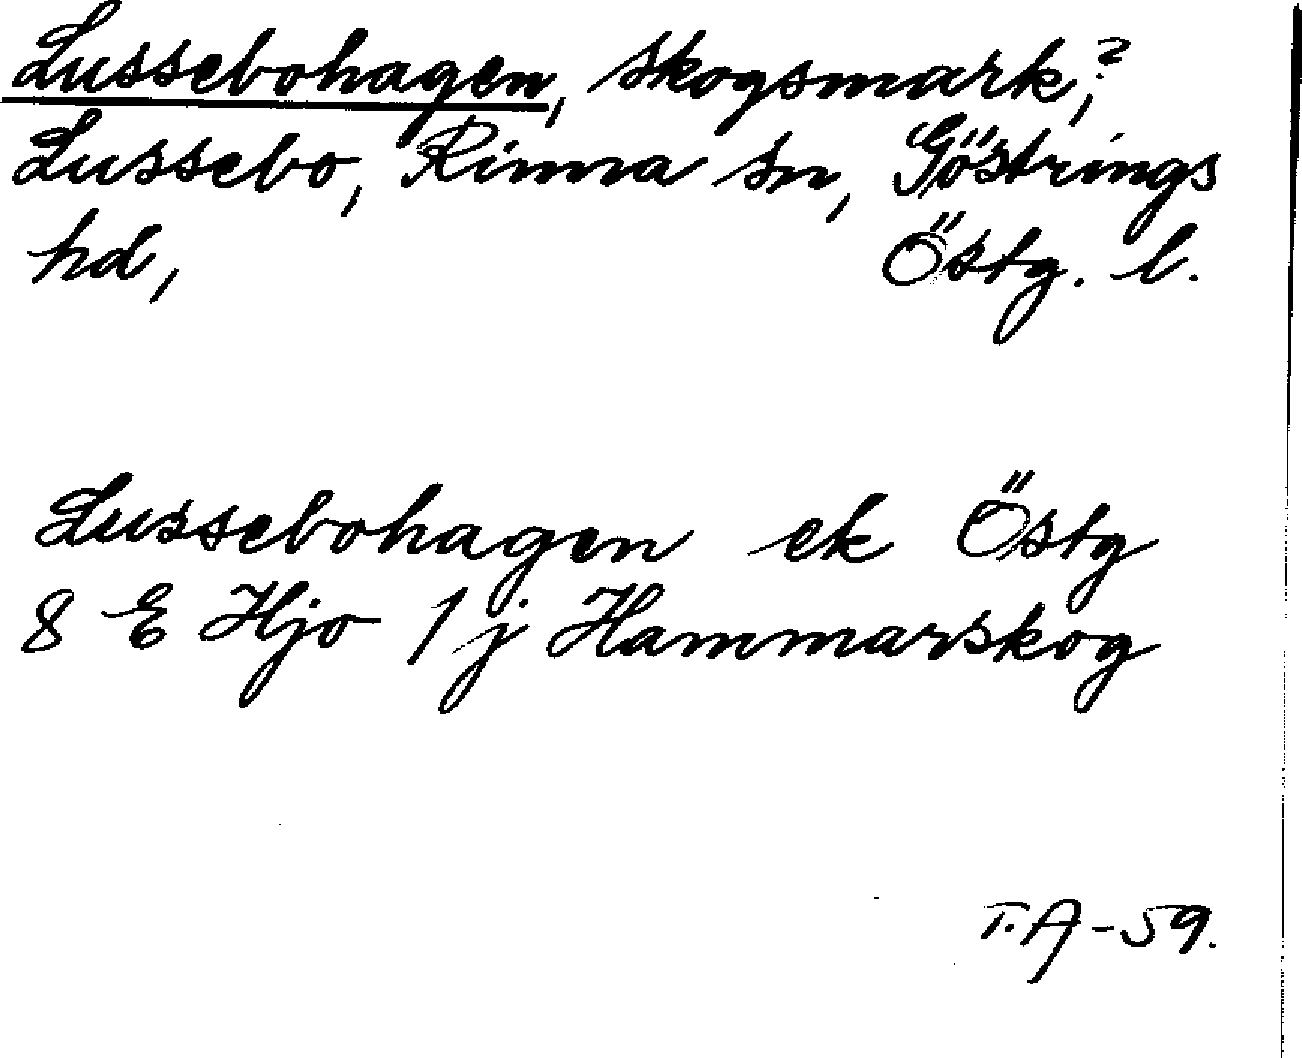 Lussebohagen, skogsmark,?
Lussebo, Rinna sn, Göstrings
hd, Östg. l.
Lussebohagen ek Östg
8 E Hjo 1 j Hammarskog
T.A-59.